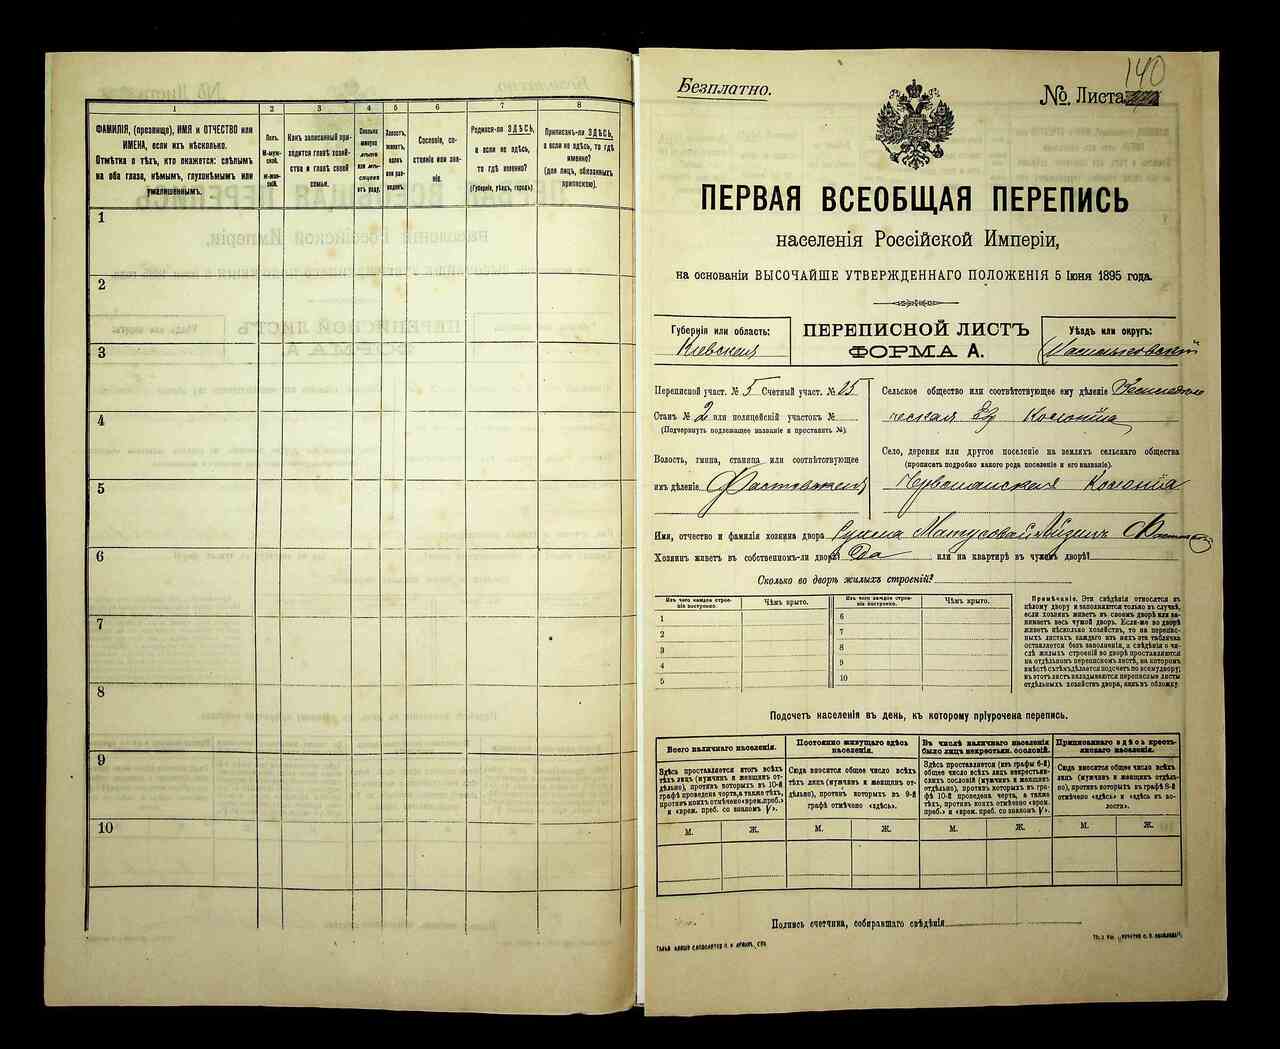 1
2
3
4
5
6
7
8
ФАМИЛІЯ, (прозвище), ИМЯ и ОТЧЕСТВО или
ИМЕНА, если ихъ нѣсколько.
Отмѣтка о тѣхъ, кто окажется: слѣпымъ
на оба глаза, нѣмымъ, глухонѣмымъ или
умалишеннымъ.
Полъ.
М-мужской.
Ж-женской.
Какъ записанный приходится
главѣ хозяйства
и главѣ своей
семьи.
Сколько
минуло
лѣтъ
или мѣсяцевъ
отъ роду.
Сословіе, состояніе
или званіе.
Родился-ли ЗДѢСЬ,
а если не здѣсь,
то гдѣ именно?
(Губернія, уѣздъ, городъ).
Приписанъ-ли ЗДѢСЬ,
а если не здѣсь, то гдѣ
именно?
(для лицъ, обязанныхъ
припискою).
1
2
3
4
5
6
7
8
9
10
140
Безплатно.
№ Листа
ПЕРВАЯ ВСЕОБЩАЯ ПЕРЕПИСЬ
населенія Россійской Имперіи,
на основаніи ВЫСОЧАЙШЕ УТВЕРЖДЕННАГО ПОЛОЖЕНІЯ 5 Іюня 1895 года.
Губернія или область:
Кіевская
ПЕРЕПИСНОЙ ЛИСТЪ
ФОРМА А.
Уѣздъ или округъ:
Васильковскій
Переписной участ. № 5 Счетный участ. № 25
Станъ № 2 или полицейскій участокъ №
(Подчеркнуть подлежащее названіе и проставить №).
Волость, гмина, станица или соотвѣтствующее
имъ дѣленіе Фастовская
Сельское общество или соотвѣтствующее ему дѣленіе Земледѣльческая
Колонія
Село, деревня или другое поселеніе на земляхъ сельскаго общества
(прописать подробно какого рода поселеніе и его названіе).
Червонанская Колонія
Имя, отчество и фамилія хозяина двора
Хозяинъ живетъ въ собственномъ-ли дворѣ? Да или на квартирѣ въ чужомъ дворѣ?
Сколько во дворѣ жилыхъ строеній?
Изъ чего каждое строеніе построено.
Чѣмъ крыто.
1
2
3
4
5
Изъ чего каждое строеніе построено.
Чѣмъ крыто.
6
7
8
9
10
Примѣчаніе. Эти свѣдѣнія относятся къ
цѣлому двору и заполняются только въ случаѣ,
если хозяинъ живетъ въ своемъ дворѣ или занимаетъ
весь чужой дворъ. Если-же во дворѣ
живетъ нѣсколько хозяйствъ, то на переписныхъ
листахъ каждаго изъ нихъ эта табличка
оставляется безъ заполненія, а свѣдѣнія о числѣ
жилыхъ строеній во дворѣ проставляются
на отдѣльномъ переписномъ листѣ, на которомъ
вмѣстѣ съ тѣмъ дѣлается подсчетъ по всему двору;
въ этотъ листъ вкладываются переписные листы
отдѣльныхъ хозяйствъ двора, какъ въ обложку.
Подсчетъ населенія въ день, къ которому пріурочена перепись.
Всего наличнаго населенія.
Здѣсь проставляется итогъ всѣхъ
тѣхъ лицъ (мужчинъ и женщинъ отдѣльно),
противъ которыхъ въ 10-й
графѣ проведена черта, а также тѣхъ,
противъ коихъ отмѣчено «врем. преб.»
и «врем. преб. со знакомъ V».
Постоянно живущаго здѣсь
населенія.
Сюда вносится общее число всѣхъ
тѣхъ лицъ (мужчинъ и женщинъ отдѣльно),
противъ которыхъ въ 9-й
графѣ отмѣчено «здѣсь».
Въ числѣ наличнаго населенія
было лицъ некрестьян. сословій.
Здѣсь проставляется (изъ графы 6-й)
общее число всѣхъ лицъ некрестьянскихъ
сословій (мужчинъ и женщинъ
отдѣльно), противъ которыхъ въ графѣ
10-й проведена черта, а также
тѣхъ, противъ коихъ отмѣчено «врем.
преб.» и «врем. преб. со знакомъ V».
Приписаннаго здѣсь крестьянскаго
населенія.
Сюда вносится общее число всѣхъ
лицъ (мужчинъ и женщинъ отдѣльно),
противъ которыхъ въ графѣ 8-й
отмѣчено «здѣсь» и «здѣсь въ волости».
М. Ж. М. Ж. М. Ж. М. Ж.
Подпись счетчика, собиравшаго свѣдѣнія